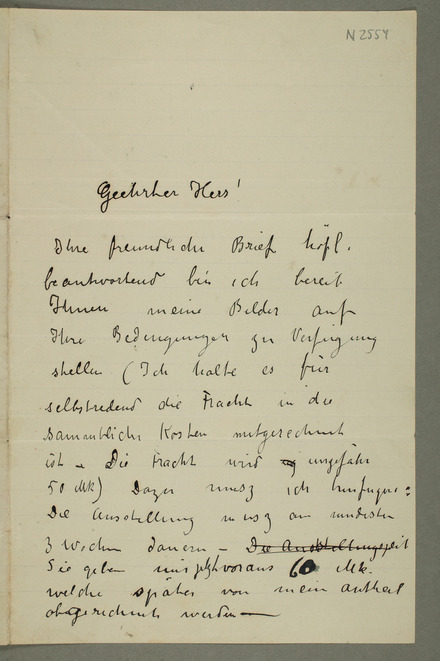 N 2554
Geehrter Herr!
Ihre freundliche Brief höfl.
beantwortend bin ich bereit
Ihnen meine Bilder auf
Ihre Bedingungen zu Verfügung
stellen (Ich halte es für
selbstredend die Fracht in die
sammtliche Kosten mitgerechnet
ist – Die Fracht wird ungefähr
50 Mk) Dazu musz ich
Die Ausstellung musz am mindesten
3 Wochen dauern – Die Ausstellungszeit
Sie geben mir jetzt voraus 60 Mk.
welche später von mein antheil
abgerechnet werden –